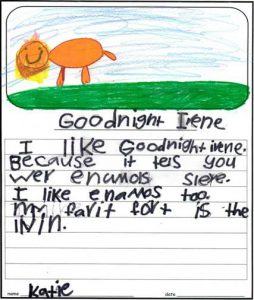 Goodnight Irene
I like Goodnight irene.
Because it tels you
wer enamos slere.
I like enamos too.
my farit fort is the
livin.
name Katie date